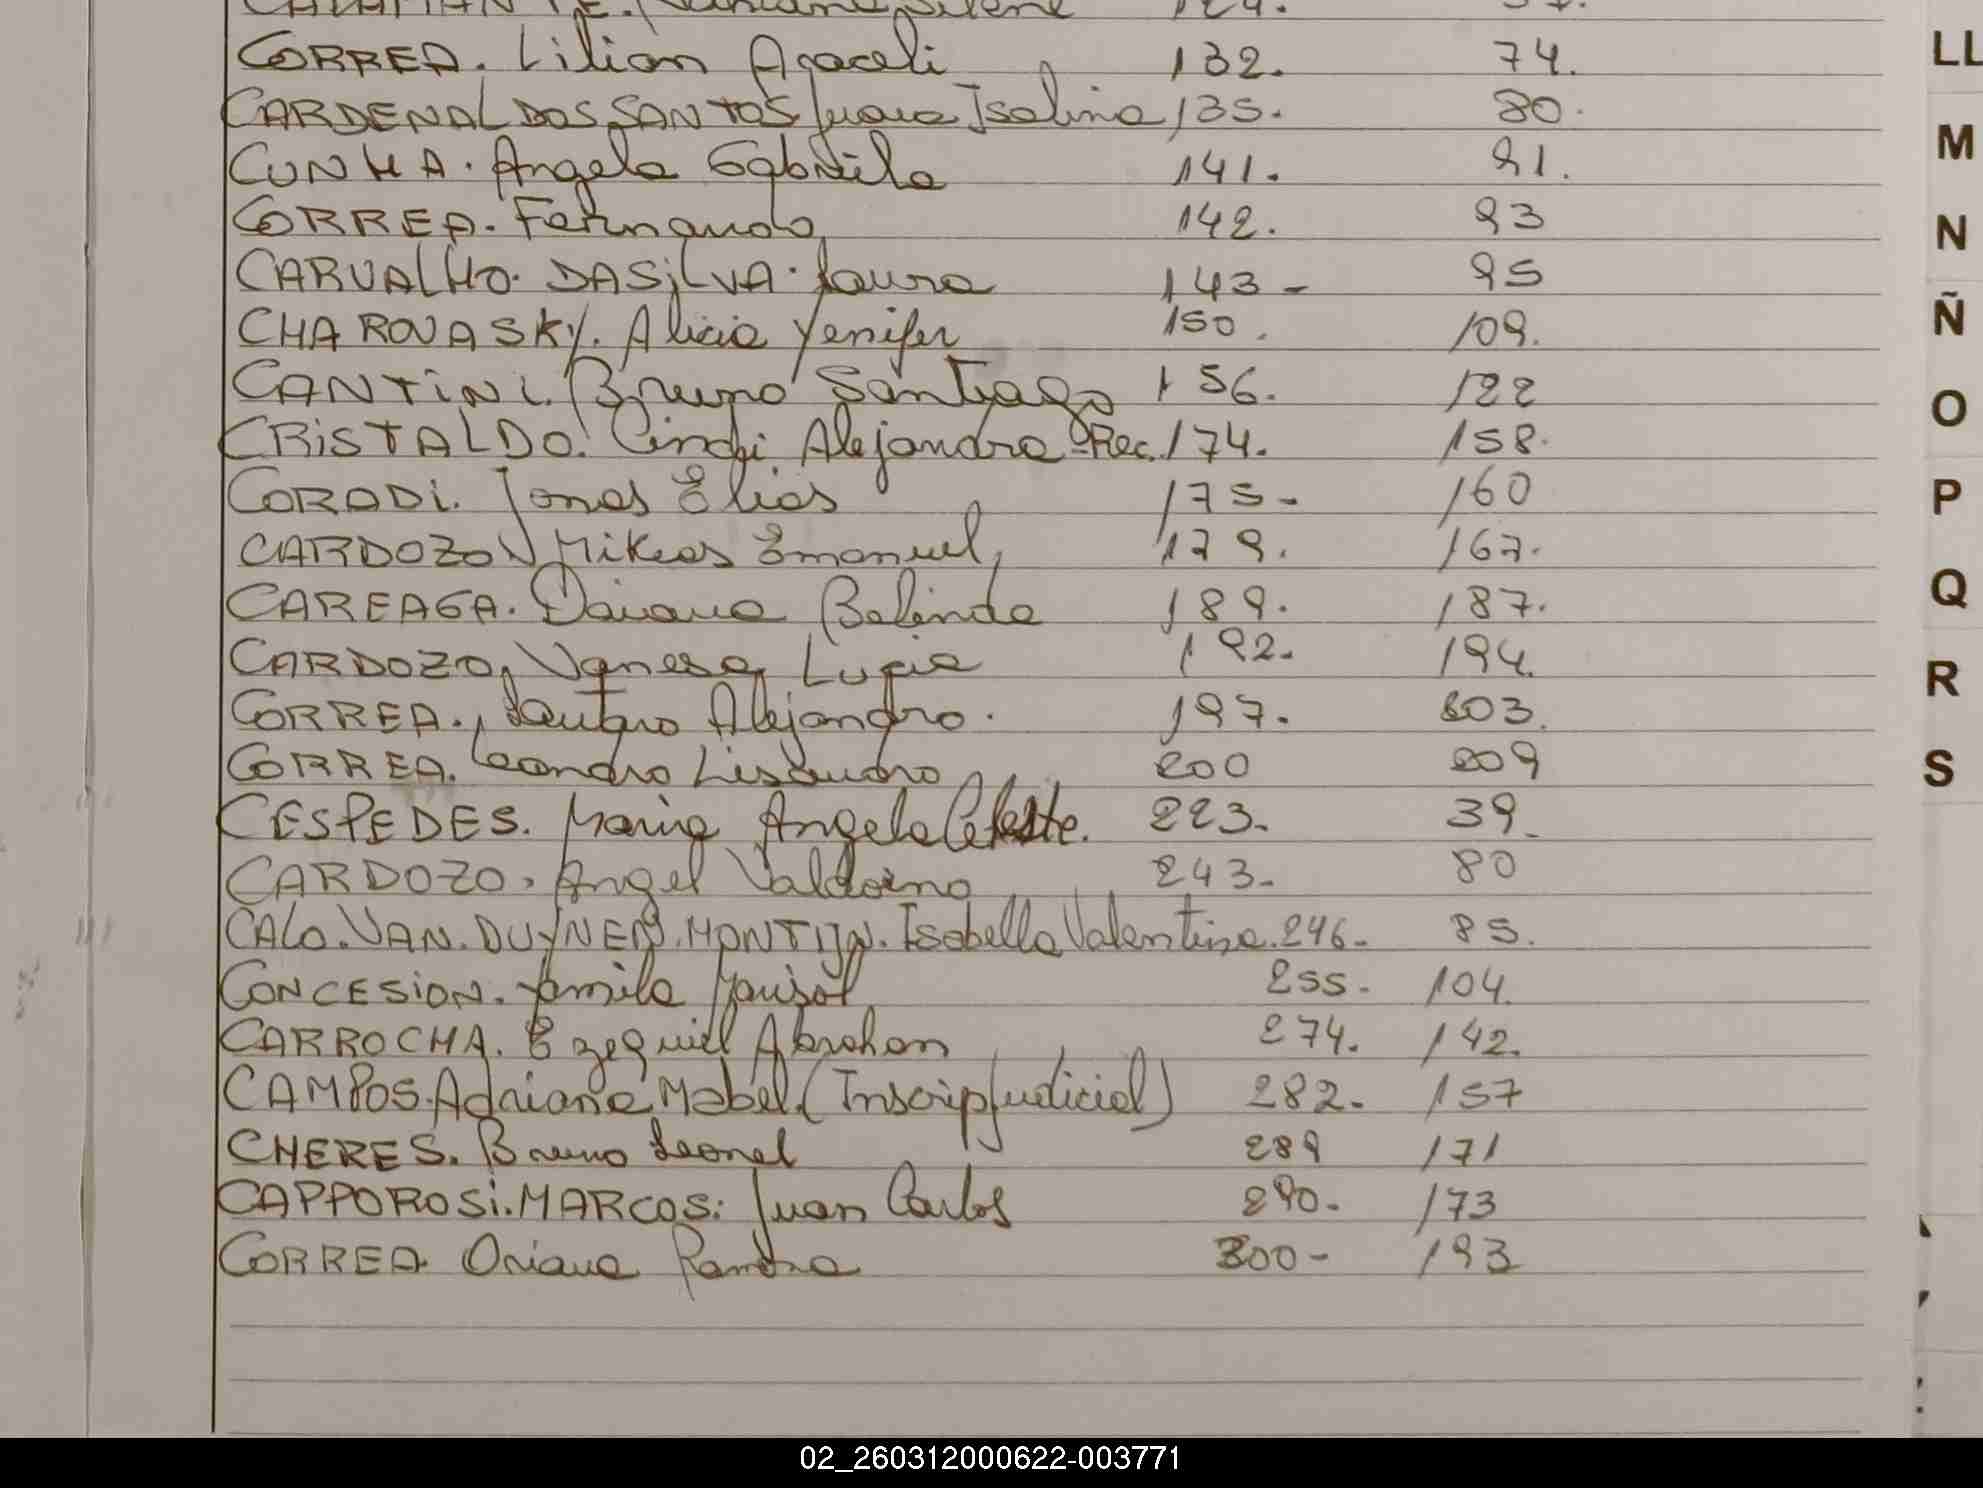 CORREA. Lilian Araceli 132. 74.
CARDENAL DOS SANTOS Juana Isolina 135. 80.
CUNHA. Angela Gabriela 141. 91.
CORREA. Fernando 142. 93
CARVALHO. DASiLVA. Laura 143- 95
CHAROVASKY. Alicia Yenifer 150. 109.
CANTiNi. Bruno Santiago 156. 122
CRiSTALDO. Cindi Alejandra-Rec. 174. 158.
CORADi. Jonas Elias 175- 160
CARDOZO Mikeas Emanuel 179. 167.
CAREAGA. Daiana Belinda 189. 187.
CARDOZO, Vanesa Lucia 192. 194.
CORREA., Lautaro Alejandro. 197. 203.
CORREA. Leandro Lisandro 200 209
CESPEDES. Maria Angela Celeste. 223- 39-
CARDOZO, Angel Valdoino 243- 80
CALO. VAN. DUYNEN. MONTIJN. Isabella Valentina. 246- 85.
CONCESiON. Yamila Marisol 255- 104.
CARROCHA. Ezequiel Abrahan 274. 142.
CAMPOS. Adriana Mabel. (Inscrip Judicial) 282- 157
CHERES. Bruno Leonel 289 171
CAPPOROSi. MARCOS: Juan Carlos 290- 173
CORREA Oriana Ramona 300- 193
LL
M
N
Ñ
O
P
Q
R
S
02_260312000622-003771